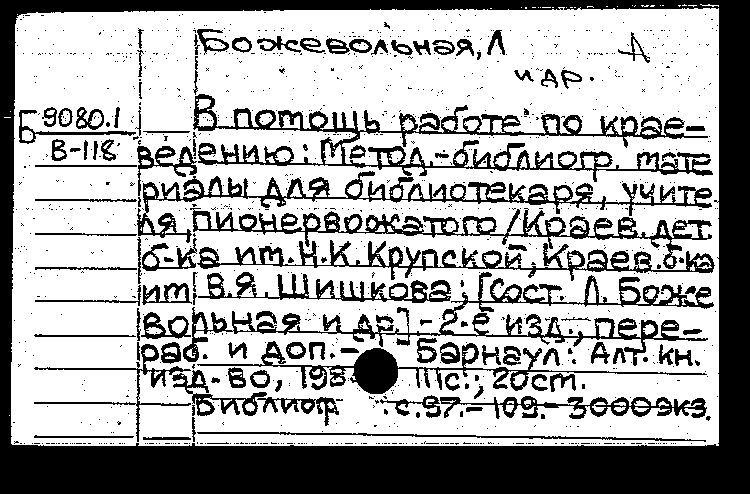 Божевольная, Л А
и др.
Б 9080.1
В-118
В помощь работе по крае-
ведению: Метод.-библиогр. мате
риалы для библиотекаря, учите
ля, пионервожатого /Краев. дет.
б-ка им. Н.К. Крупской, Краев. б-ка
им В.Я. Шишкова; [Сост. Л. Боже
вольная и др.] - 2-е изд., пере-
раб. и доп. - Барнаул: Алт. кн.
изд-во, 198 111с.; 20см.
Библиогр с. 97.-109.- 3000экз.